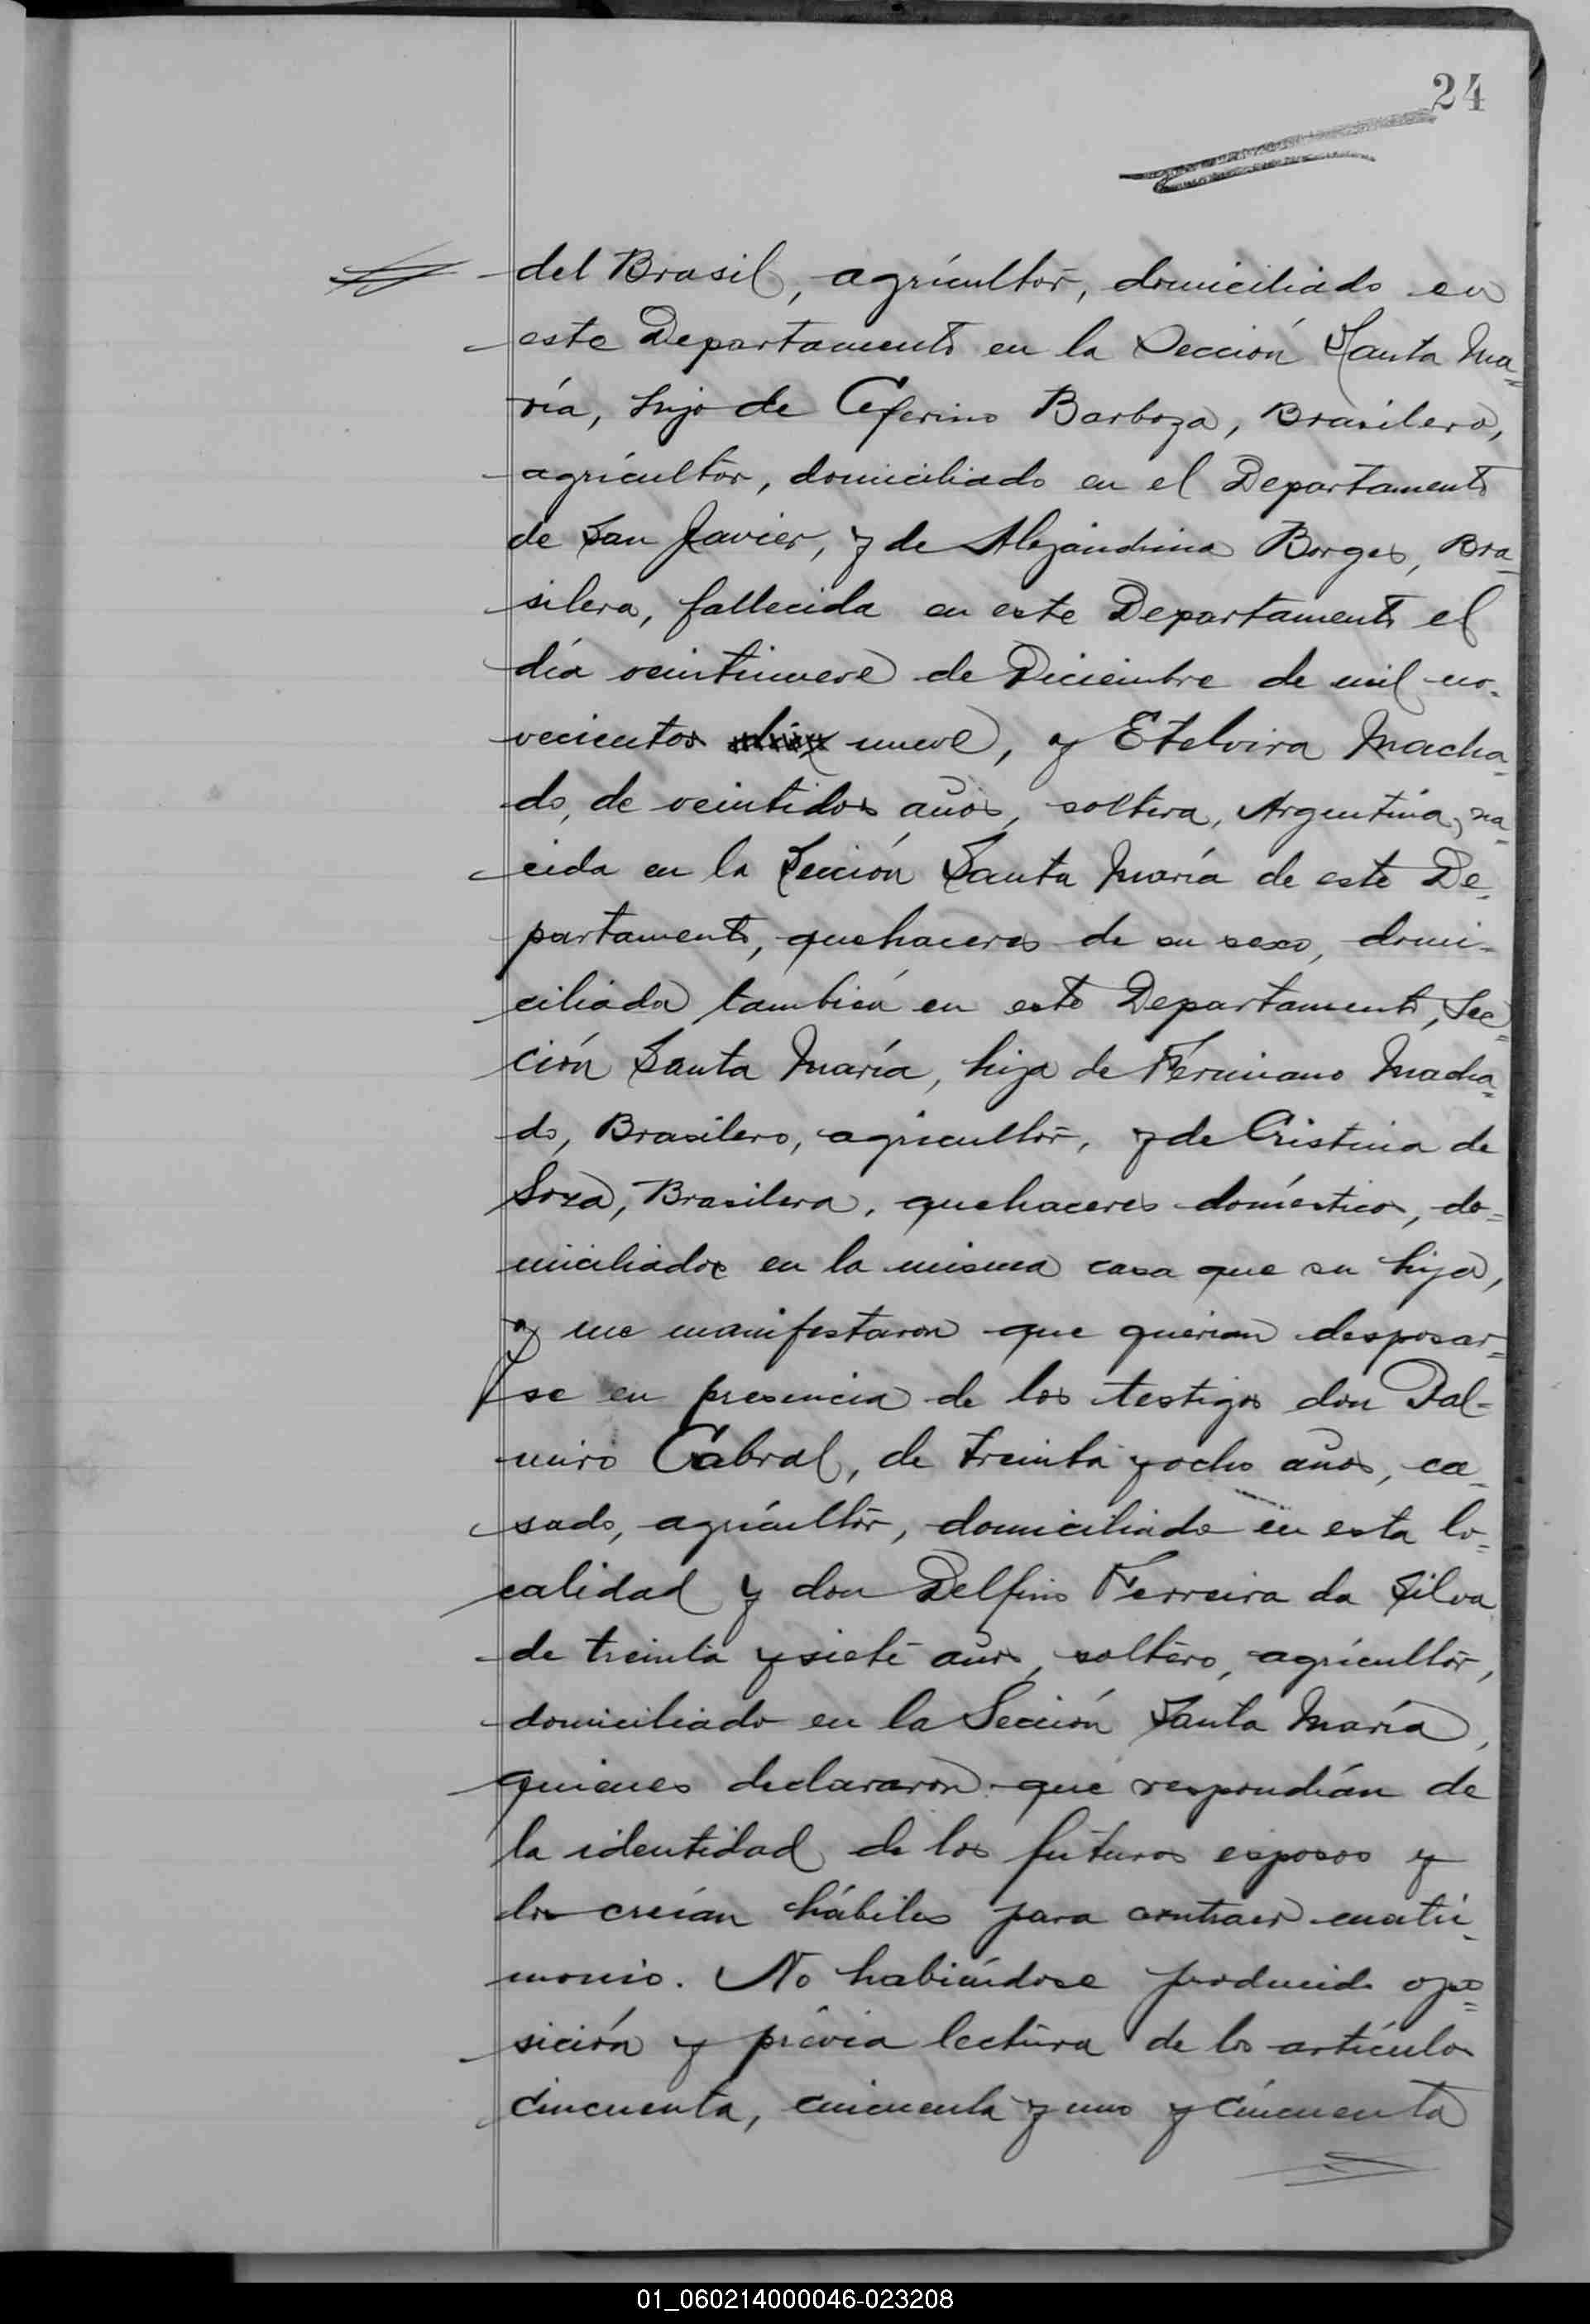 24
del Brasil, agricultor, domiciliado en
este Departamento en la Sección Santa Ma=
ría, hijo de Ceferino Barboza, Brasilero,
agricultor, domiciliado en el Departamento
de San Javier, y de Alejandrina Borges, Bra=
silera, fallecida en este Departamento el
día veintinueve de Diciembre de mil no-
vecientos nueve, y Etelvira Macha=
do, de veintidos años, soltera, Argentina, na=
cida en la Sección Santa María de este De=
partamento, quehaceres de su sexo, domi-
ciliada también en este Departamento, Sec=
ción Santa María, hija de Ferminano Macha=
do, Brasilero, agricultor, y de Cristina de
Soza, Brasilera, quehaceres domésticos, do=
miciliados en la misma casa que su hija,
y me manifestaron que querian desposar=
se en presencia de los testigos don Pal-
miro Cabral, de treinta y ocho años, ca=
sado, agricultor, domiciliado en esta lo=
calidad y don Delfino Ferreira da Silva
de treinta y siete años, soltero, agricultor,
domiciliado en la Sección Santa María,
quienes declararon que respondían de
la identidad de los futuros esposos y
los creían hábiles para contraer matri=
monio. No habiéndose producido opo=
sición y prévia lectura de los artículos
cincuenta, cincuenta y uno y cincuenta
01_060214000046-023208